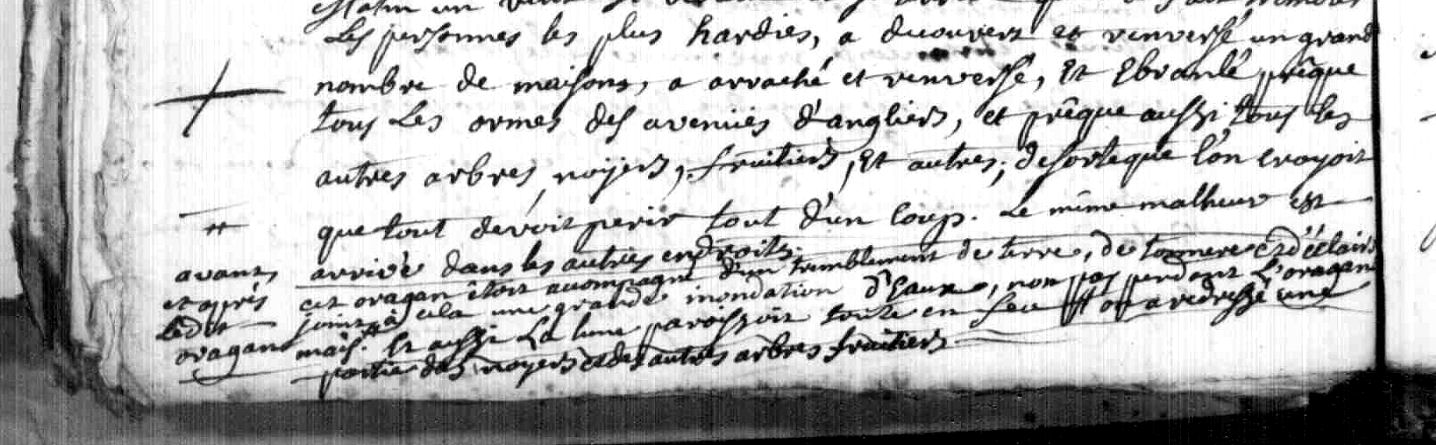 Les personnes les plus hardies, a decouvert et renversé un grand
nombre de maisons, a arraché et renversé, Et Ebranlé prêque
tous Les ormes des avenües d'angliers, et prêque aussi tous les
autres arbres, noyers, fruitiers, Et autres; desorteque l'on croyoit
que tout devoit perir tout d'un coup. Le même malheur est
arrivée dans les autres endroits.
cet oragan êtoit accompagné d'un tremblement de terre, de tonnere et d'éclairs
joint à cela une grande inondation d'Eaux, non pas pendant L'oragan
mais # Et aussi La lune paroissoit toute en feu # on a redressé une
partie des noyers et des autres arbres fruitiers
#
avant
et apprés
Ledit
oragan